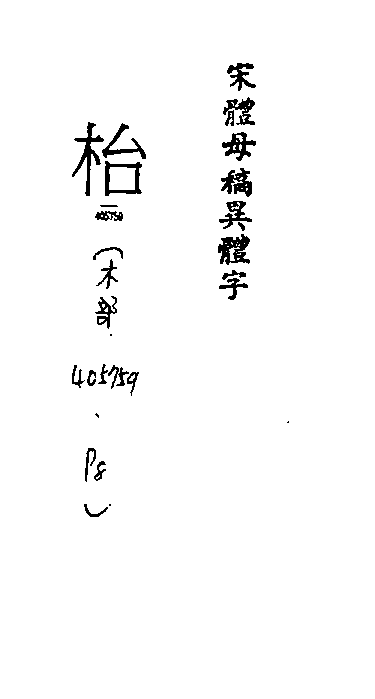 宋體母稿異體字
枱
405759
(木部.405759、P8)